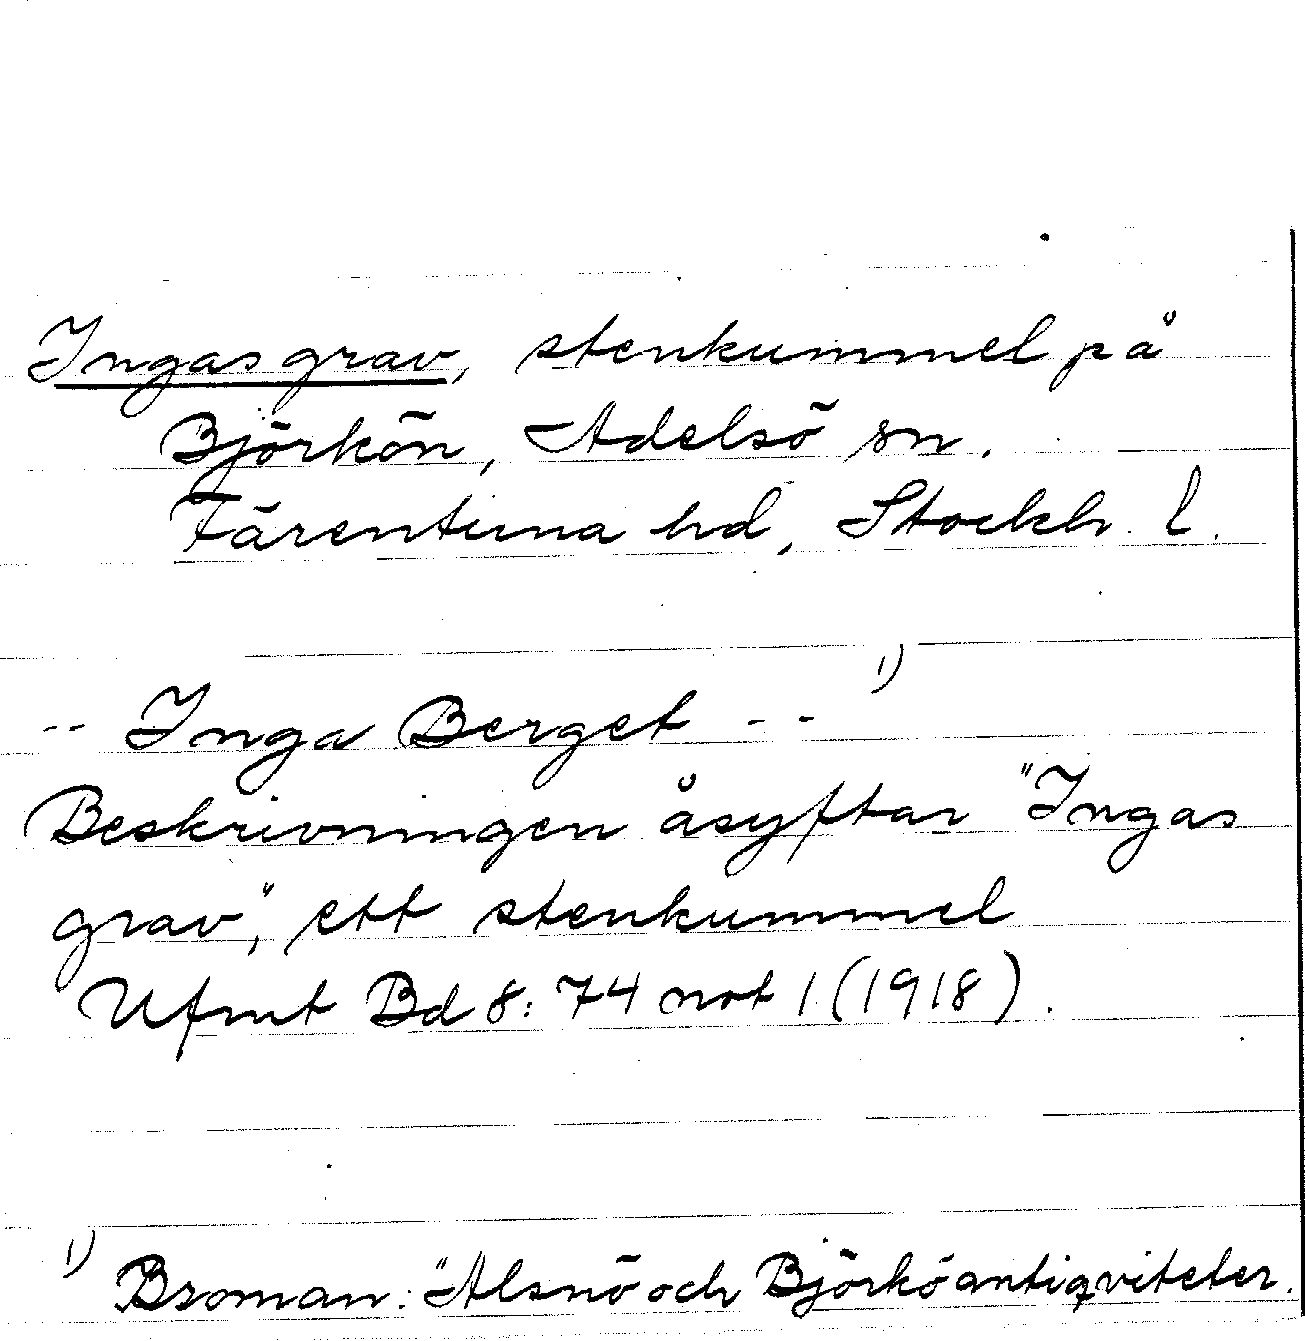 Ingas grav, stenkummel på
Björkön, Adelsö sn.
Färentuna hd, Stockh. l.
-- Inga Berget -- 1)
Beskrivningen åsyftar "Ingas
grav", ett stenkummel
Ufmt Bd 8: 74 not 1 (1918).
1) Broman: "Alsnö och Björkö antiqviteter.